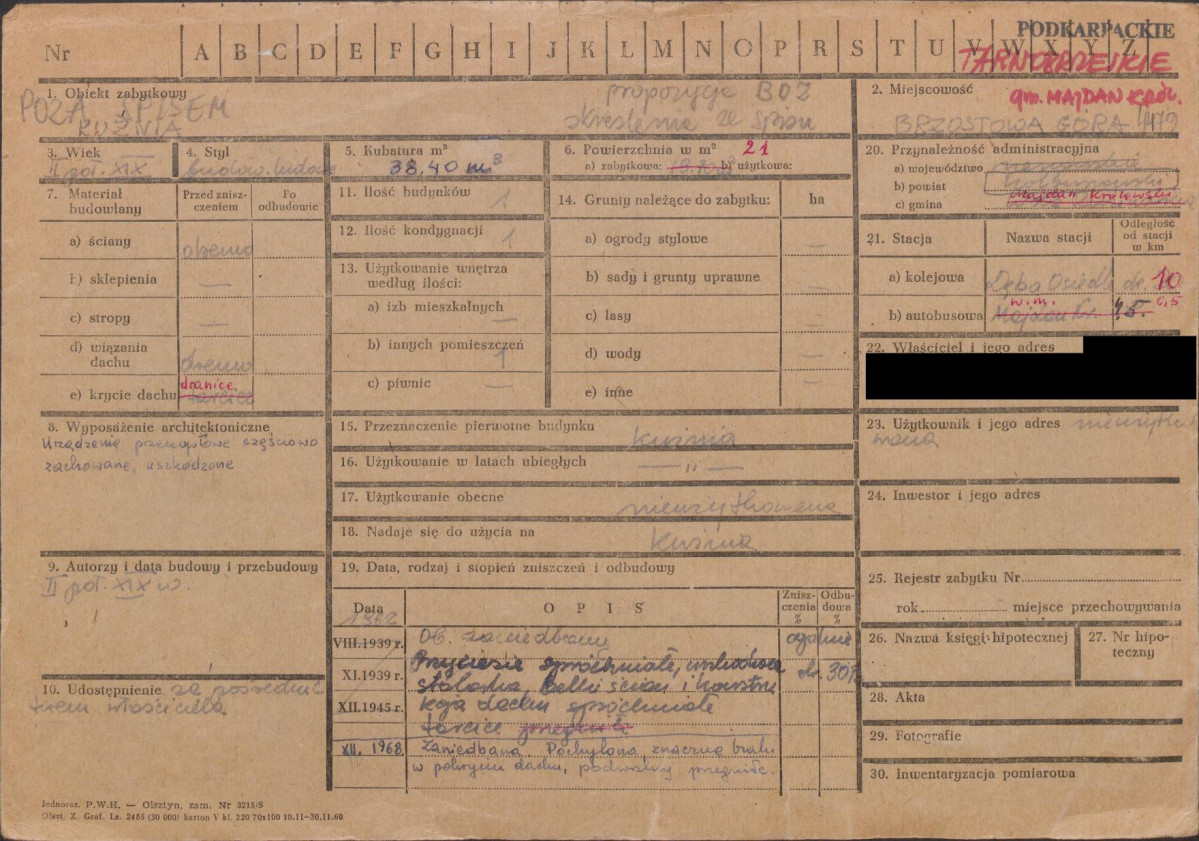 PODKARPACKIE
Nr A B C D E F G H I J K L M N O P R S T U V W X Y Z
TARNOBRZESKIE
1. Obiekt zabytkowy
POZA SPISEM
KUŹNIA
propozycja BDZ
skreślenia ze spisu
2. Miejscowość
gm. MAJDAN KRÓL.
BRZOSTOWA GÓRA 1172
3. Wiek
II poł. XIX
4. Styl
budow. ludow
5. Kubatura m³
38,40 m³
6. Powierzchnia w m² 21
a) zabytkowa: b) użytkowa:
20. Przynależność administracyjna
a) województwo
b) powiat
c) gmina
Majdan Królewski
7. Materiał budowlany
Przed zniszczeniem
Po odbudowie
a) ściany drewno
b) sklepienia —
c) stropy —
d) wiązania dachu drewno
e) krycie dachu dranice
tarcice
11. Ilość budynków 1
12. Ilość kondygnacji 1
13. Użytkowanie wnętrza według ilości:
a) izb mieszkalnych —
b) innych pomieszczeń 1
c) piwnic —
14. Grunty należące do zabytku: ha
a) ogrody stylowe —
b) sady i grunty uprawne —
c) lasy —
d) wody —
e) inne
21. Stacja Nazwa stacji Odległość od stacji w km
a) kolejowa Dęba Osiedle ok. 10
b) autobusowa w.m. 0,5
Majdan Kr. 4,5.
22. Właściciel i jego adres
8. Wyposażenie architektoniczne
Urządzenie przemysłowe częściowo
zachowane, uszkodzone
15. Przeznaczenie pierwotne budynku
kuźnia
16. Użytkowanie w latach ubiegłych
— „ —
17. Użytkowanie obecne
nieużytkowana
18. Nadaje się do użycia na
kuźnia
23. Użytkownik i jego adres nieużytko
wana
24. Inwestor i jego adres
9. Autorzy i data budowy i przebudowy
II poł. XIX w.
19. Data, rodzaj i stopień zniszczeń i odbudowy
Data OPIS Zniszczenia % Odbudowa %
1962
VIII.1939 r. Ob. zaniedbany ogólnie
XI.1939 r. Przyciesie spróchniałe, uszkodzona ok. 30%
stolarka, belki ścian i konstru
XII.1945 r. kcja dachu spróchniałe
tarcice
XII. 1968 Zaniedbana. Pochylona, znaczne braki
w pokryciu dachu, podwaliny przegniłe.
10. Udostępnienie za pośrednic
twem właściciela
25. Rejestr zabytku Nr
rok miejsce przechowywania
26. Nazwa księgi hipotecznej
27. Nr hipoteczny
28. Akta
29. Fotografie
30. Inwentaryzacja pomiarowa
Jednoraz. P.W.H. — Olsztyn, zam. Nr 3215/S
Olszt. Z. Graf. Lz. 2485 (30 000) karton V kl. 220 70x100 10.11-30.11.60